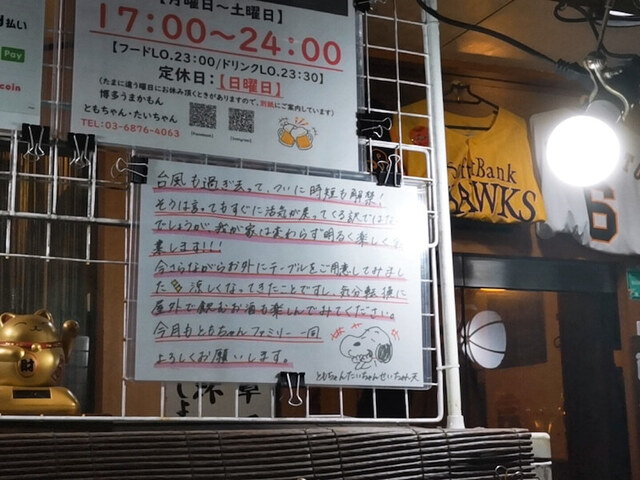 【月曜日〜土曜日】
17:00〜24:00
【フードLO.23:00/ドリンクLO.23:30】
定休日：【日曜日】
(たまに違う曜日にお休み頂くときがありますので、別紙にご案内しています)
博多うまかもん
ともちゃん・たいちゃん
TEL:03-6876-4063
払い
Pay
coin
台風も過ぎ去って、ついに時短も解禁！
そうは言ってもすぐに活気が戻ってくる訳ではない
でしょうが 我が家は変わらず明るく楽しく
業します!!!
今さらながらお外にテーブルをご用意してみまし
た 涼しくなってきたことですし、気分転換に
屋外で飲むお酒も楽しんでみてください。
今月もともちゃんファミリー一同
よろしくお願いします。
ともちゃんたいちゃんせいちゃん
SoftBank
HAWKS
6